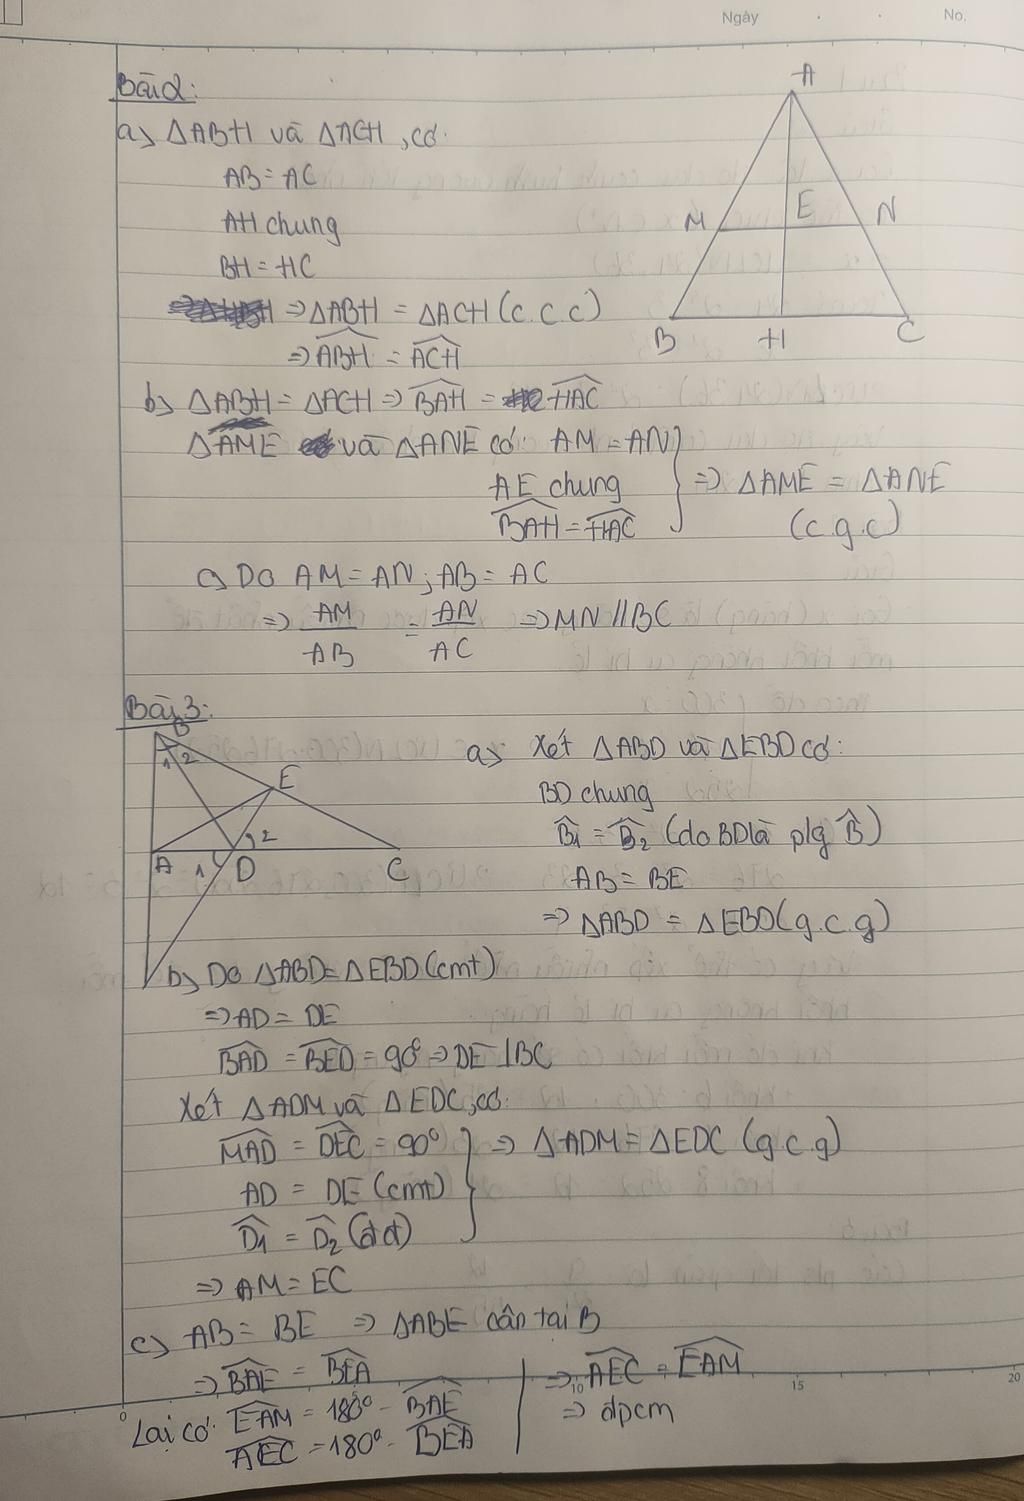 Ngày
No.
Bài 2:
a, △ABH và △ACH, có:
AB = AC
AH chung
BH = HC
⇒ △ABH = △ACH (c.c.c)
⇒ $\widehat{ABH}$ = $\widehat{ACH}$
b, △ABH = △ACH ⇒ $\widehat{BAH}$ = $\widehat{HAC}$
△AME và △ANE có: AM = AN
AE chung
$\widehat{BAH}$ = $\widehat{HAC}$
} ⇒ △AME = △ANE
(c.g.c)
c, Do AM = AN; AB = AC
⇒ $\frac{AM}{AB}$ = $\frac{AN}{AC}$ ⇒ MN // BC
A
M
E
N
B
H
C
Bài 3:
B
1 2
E
2
A
1
D
C
a, Xét △ABD và △EBD có:
BD chung
$\widehat{B_1}$ = $\widehat{B_2}$ (do BD là plg $\widehat{B}$)
AB = BE
⇒ △ABD = △EBD (g.c.g)
b, Do △ABD = △EBD (cmt)
⇒ AD = DE
$\widehat{BAD}$ = $\widehat{BED}$ = 90° ⇒ DE ⊥ BC
Xét △ADM và △EDC, có:
$\widehat{MAD}$ = $\widehat{DEC}$ = 90°
AD = DE (cmt)
$\widehat{D_1}$ = $\widehat{D_2}$ (đ đ)
} ⇒ △ADM = △EDC (g.c.g)
⇒ AM = EC
c, AB = BE ⇒ △ABE cân tại B
⇒ $\widehat{BAE}$ = $\widehat{BEA}$
Lại có: $\widehat{EAM}$ = 180° - $\widehat{BAE}$
$\widehat{AEC}$ = 180° - $\widehat{BEA}$
⇒ $\widehat{AEC}$ = $\widehat{EAM}$
⇒ đpcm
0
10
15
20